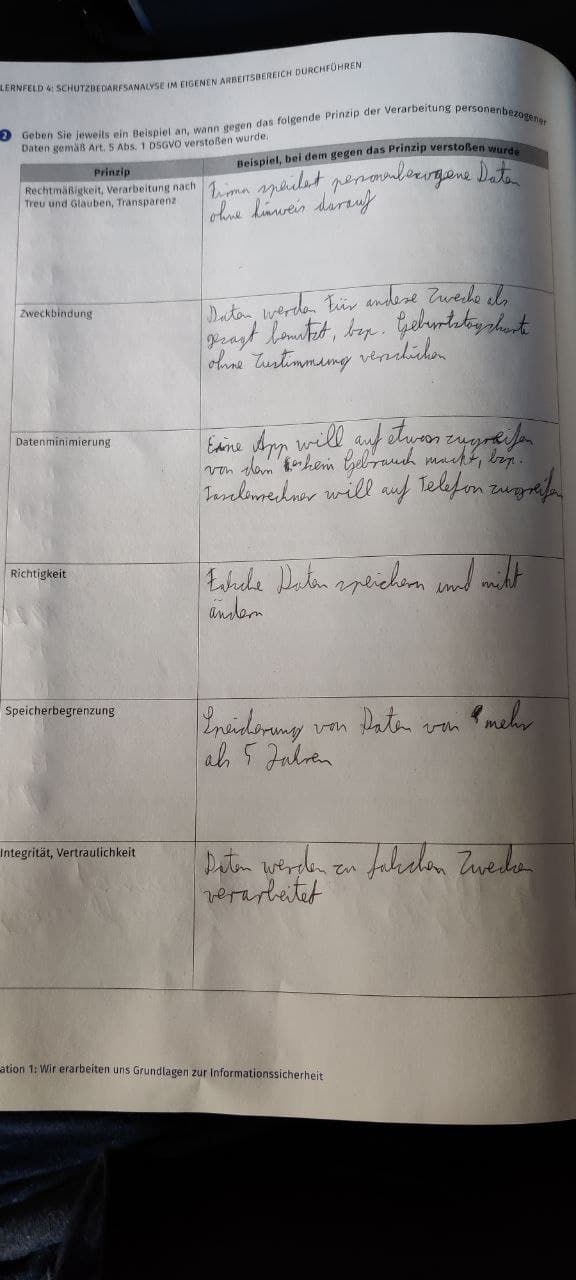 LERNFELD 4: SCHUTZBEDARFSANALYSE IM EIGENEN ARBEITSBEREICH DURCHFÜHREN
2 Geben Sie jeweils ein Beispiel an, wann gegen das folgende Prinzip der Verarbeitung personenbezogener
Daten gemäß Art. 5 Abs. 1 DSGVO verstoßen wurde.
Prinzip
Beispiel, bei dem gegen das Prinzip verstoßen wurde
Rechtmäßigkeit, Verarbeitung nach
Treu und Glauben, Transparenz
Firma speichert personenbezogene Daten
ohne hinweis darauf
Zweckbindung
Daten werden für andere Zwecke als
gesagt benutzt, bzp. Geburtstagskarte
ohne Zustimmung verschicken
Datenminimierung
Eine App will auf etwas zugreifen
von dem kein Gebrauch macht, bzp.
Taschenrechner will auf Telefon zugreifen
Richtigkeit
Falsche Daten speichern und nicht
ändern
Speicherbegrenzung
Speicherung von Daten von mehr
als 5 Jahren
Integrität, Vertraulichkeit
Daten werden zu falschen Zwecken
verarbeitet
ation 1: Wir erarbeiten uns Grundlagen zur Informationssicherheit